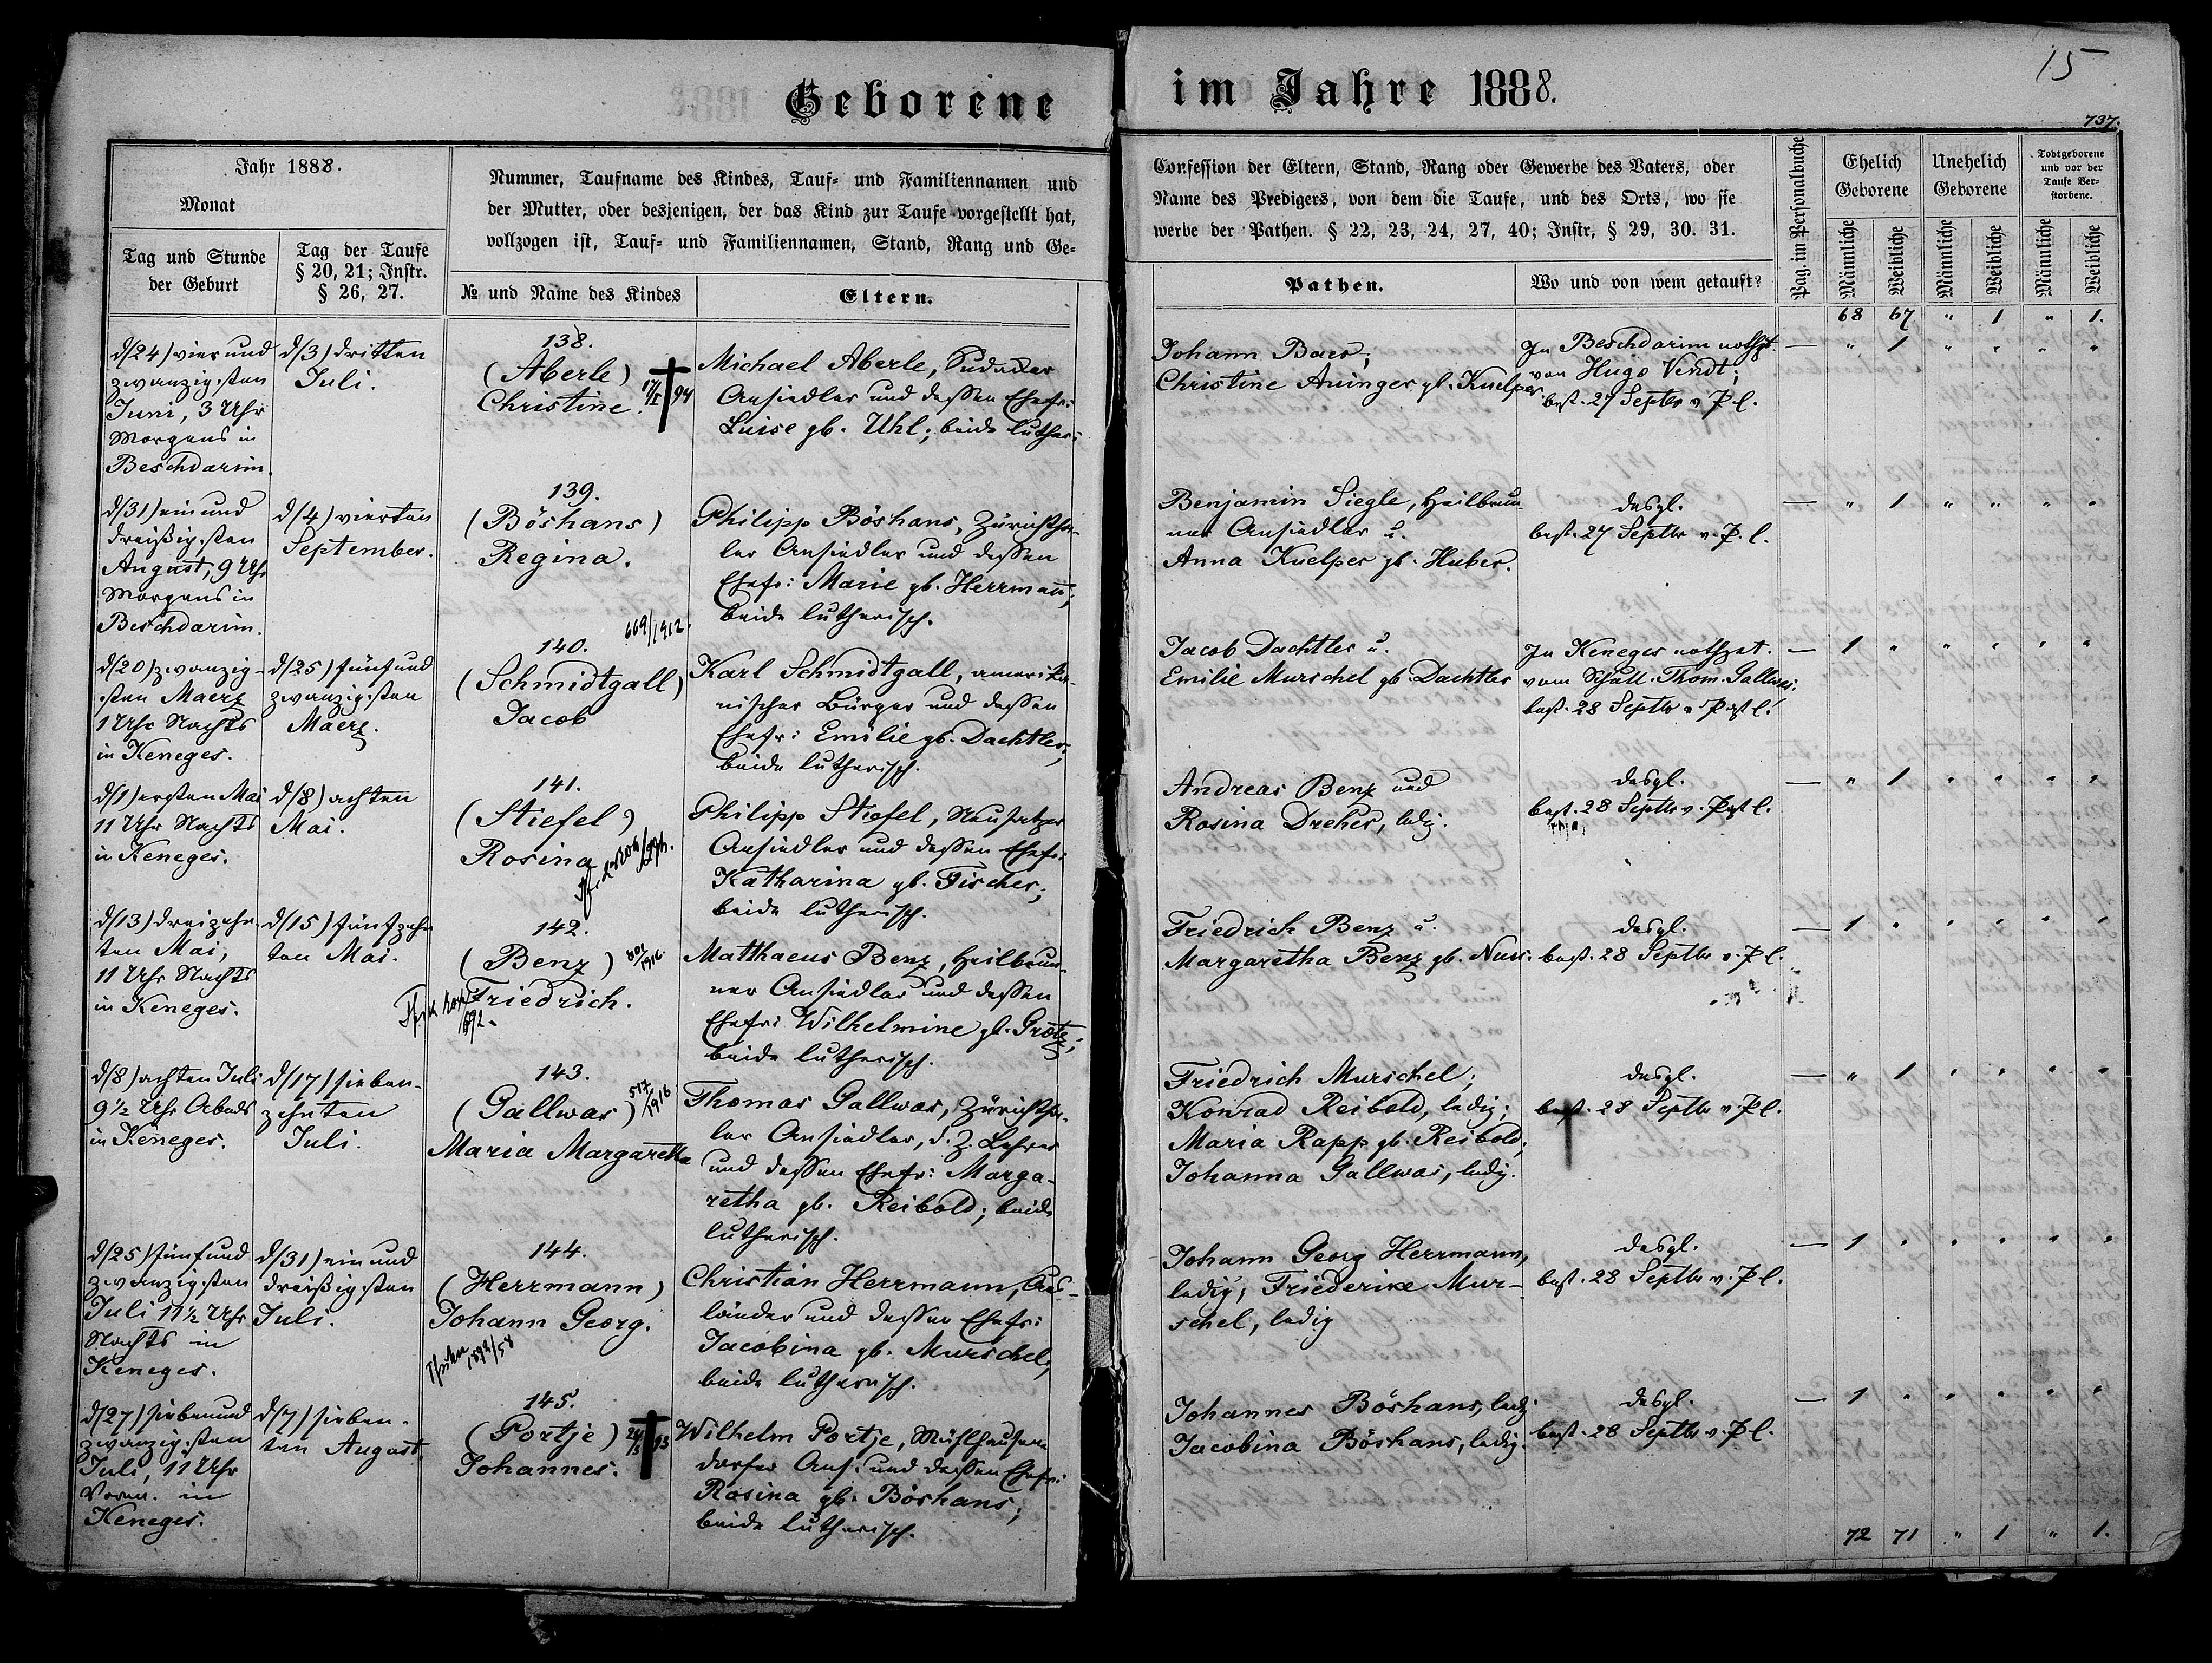 Geborene
im Jahre 1888.
15
737.
Jahr 1888.
Monat
Tag und Stunde
der Geburt
Tag der Taufe
§ 20, 21; Instr.
§ 26, 27.
Nummer, Taufname des Kindes, Tauf- und Familiennamen und
der Mutter, oder desjenigen, der das Kind zur Taufe vorgestellt hat,
vollzogen ist, Tauf- und Familiennamen, Stand, Rang und Ge-
№ und Name des Kindes
Eltern.
Confession der Eltern, Stand, Rang oder Gewerbe des Vaters, oder
Name des Predigers, von dem die Taufe, und des Orts, wo sie
werbe der Pathen. § 22, 23, 24, 27, 40; Instr, § 29, 30. 31.
Pathen.
Wo und von wem getauft?
Pag. im Personalbuche
Ehelich
Geborene
Unehelich
Geborene
Todtgeborene
und vor der
Taufe Ver-
storbene.
Männliche
Weibliche
Männliche
Weibliche
Männliche
Weibliche
68 67 " 1 " 1.
d/24) vier und
zwanzigsten
Juni, 3 Uhr
Morgens in
Beschdarim.
d/3) dritten
Juli.
138.
(Aberle)
Christine.
17/I 94
Michael Aberle,
Ansiedler und dessen Ehefr:
Luise gb. Uhl; beide luther:
Johann Baer;
Christine Aninger gb. Kuelper.
In Beschdarim nothgt.
von Hugo Vendt;
best. 27 Septbr v. P. l.
— " 1 " " " "
d/31) ein und
dreißigsten
August, 9 Uhr
Morgens in
Beschdarim.
d/4) vierten
September.
139.
(Böshans)
Regina.
Philipp Böshans, Zürichtha-
ler Ansiedler und dessen
Ehefr: Marie gb. Herrmann;
beide lutherisch.
Benjamin Siegle, Heilbrun-
ner Ansiedler u.
Anna Kuelper gb. Huber.
desgl.
best. 27 Septbr v. P. l.
— " 1 " " " "
d/20) zwanzig-
sten Maerz
1 Uhr Nachts
in Keneges.
d/25) fünf und
zwanzigsten
Maerz.
669/1912.
140.
(Schmidtgall)
Jacob
Karl Schmidtgall, amerika-
nischer Bürger und dessen
Ehefr: Emilie gb. Dachtler;
beide lutherisch.
Jacob Dachtler u.
Emilie Murschel gb. Dachtler
In Keneges nothget.
vom Schull. Thom. Gallwas;
best. 28 Septbr v. Pst l.
— 1 " " " " "
d/1) ersten Mai
11 Uhr Nachts
in Keneges.
d/8) achten
Mai.
141.
(Stiefel)
Rosina
Philipp Stiefel, Neusatzer
Ansiedler und dessen Ehefr:
Katharina gb. Fischer;
beide lutherisch.
Andreas Benz und
Rosina Dreher, ledig.
desgl.
best. 28 Septbr v. Pst l.
— " 1 " " " "
d/13) dreizehn-
ten Mai,
11 Uhr Nachts
in Keneges.
d/15) fünfzehn-
ten Mai.
142.
(Benz)
801/1916.
Friedrich.
Matthaeus Benz, Heilbrun-
ner Ansiedler und dessen
Ehefr: Wilhelmine gb. Grötz;
beide lutherisch.
Friedrich Benz u.
Margaretha Benz gb. Nuss.
desgl.
best. 28 Septbr v. P l.
— 1 " " " " "
d/8) achten Juli
9½ Uhr Abends
in Keneges.
d/17) sieben-
zehnten
Juli.
143.
(Gallwas)
517/1916
Maria Margaretha
Thomas Gallwas, Zürichtha-
ler Ansiedler, d. Z. Lehrer
und dessen Ehefr: Marga-
retha gb. Reibold; beide
lutherisch.
Friedrich Murschel;
Konrad Reibold, ledig;
Maria Rapp gb. Reibold;
Johanna Gallwas, ledig.
desgl.
best. 28 Septbr v. P l.
— " 1 " " " "
d/25) fünf und
zwanzigsten
Juli 11½ Uhr
Nachts in
Keneges.
d/31) ein und
dreißigsten
Juli.
144.
(Herrmann)
Johann Georg.
1892/58
Christian Herrmann, Aus-
länder und dessen Ehefr:
Jacobina gb. Murschel;
beide lutherisch.
Johann Georg Herrmann,
ledig; Friederike Mur-
schel, ledig
desgl.
best. 28 Septbr v. P l.
— 1 " " " " "
d/27) sieben und
zwanzigsten
Juli, 11 Uhr
Vorm. in
Keneges.
d/7) sieben-
ten August.
145.
(Portje)
Johannes.
Wilhelm Portje, Mühlhausen-
dorfer Ans. und dessen Ehefr:
Rosina gb. Böshans;
beide lutherisch.
Johannes Böshans, ledig.
Jacobina Böshans, ledig.
desgl.
best. 28 Septbr v. P l.
— 1 " " " " "
72 71 " 1 " 1.